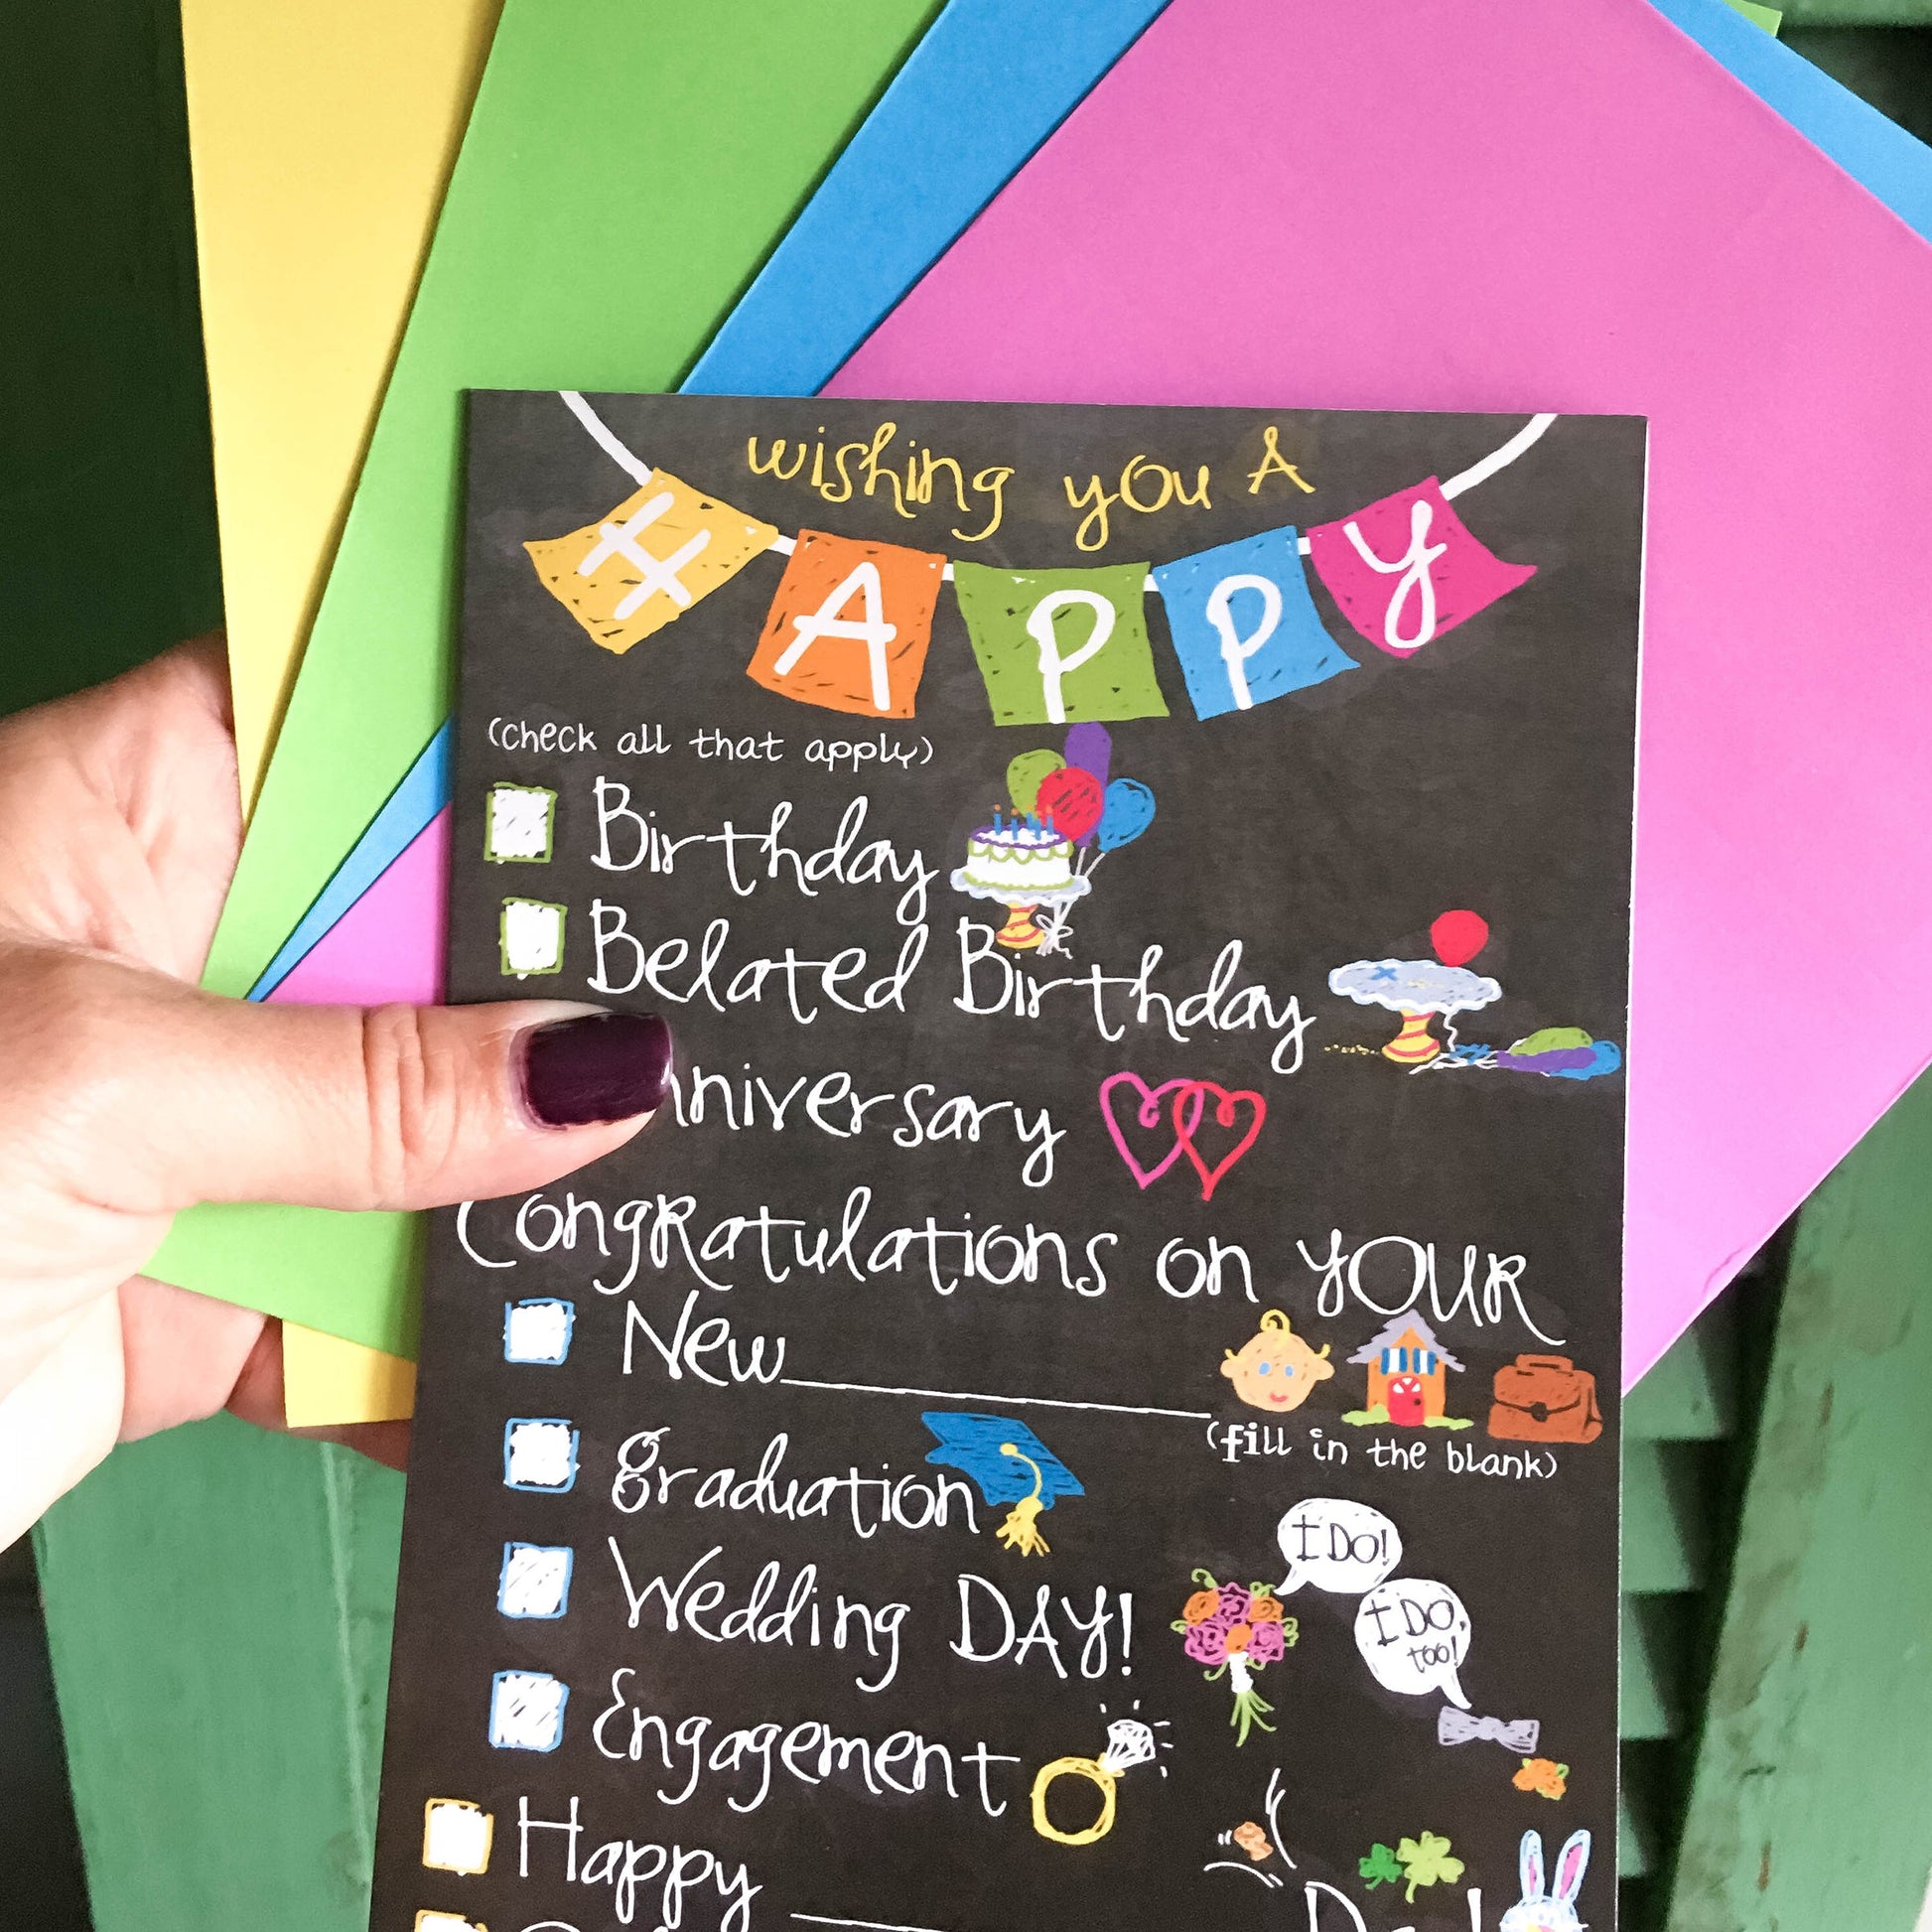 wishing you A
HAPPY
(check all that apply)
Birthday
Belated Birthday
nniversary
Congratulations on yOUR
New
(fill in the blank)
graduation
I DO!
Wedding DAY!
I DO, too!
Engagement
Happy Day!